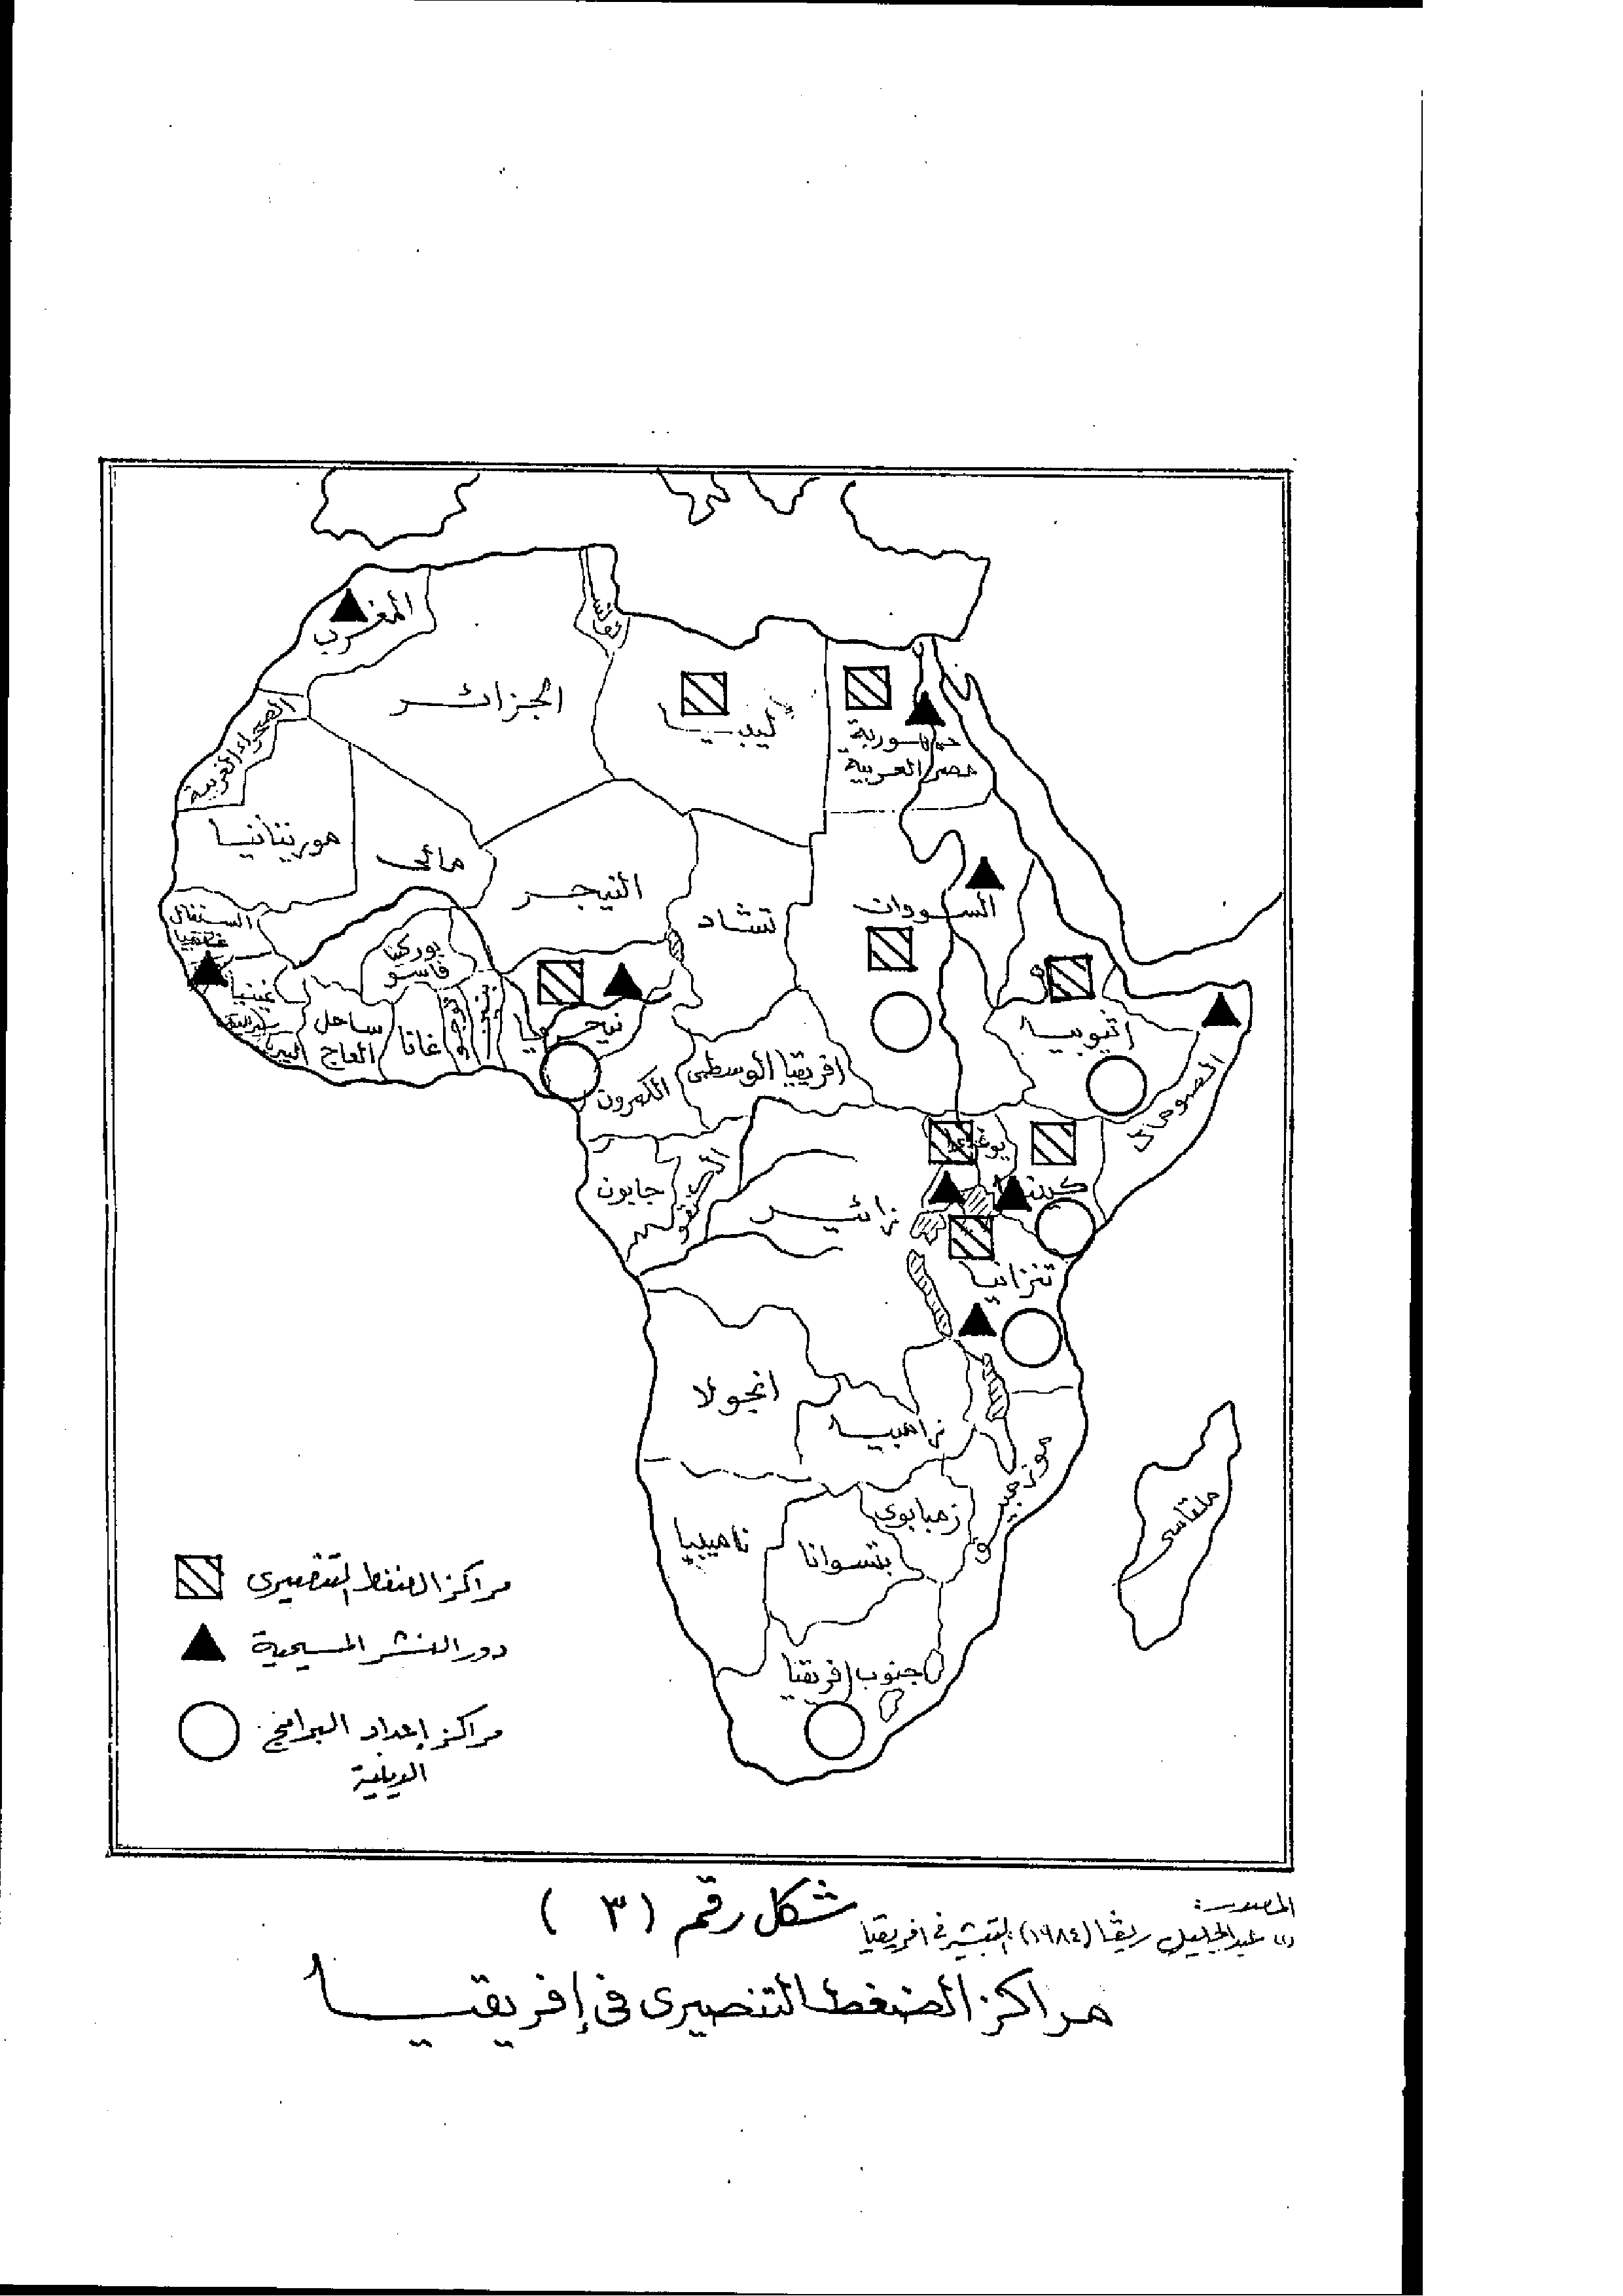 المغرب
تونس
الجزائر
ليبيا
جمهورية
مصر العربية
الصحراء الغربية
موريتانيا
مالى
النيجر
تشاد
السودان
السنغال
غامبيا
غينيا
بوركينا
فاسو
ساحل
العاج
غانا
توجو
بنين
نيجيريا
اثيوبيا
الصومال
الكمرون
افريقيا الوسطى
يوغندا
كينيا
جابون
الكونغو
زائير
تنزانيا
انجولا
زامبيا
موزمبيق
زمبابوى
ناميبيا
بتسوانا
ملقاسى
جنوب افريقيا
مراكز الضغط التنصيرى
دور النشر المسيحية
مراكز إعداد البرامج
الدينية
المصدر:
(١) عبدالجليل ريقا (١٩٨٤) التبشير فى افريقيا
شكل رقم (٣)
مراكز الضغط التنصيرى فى إفريقيا